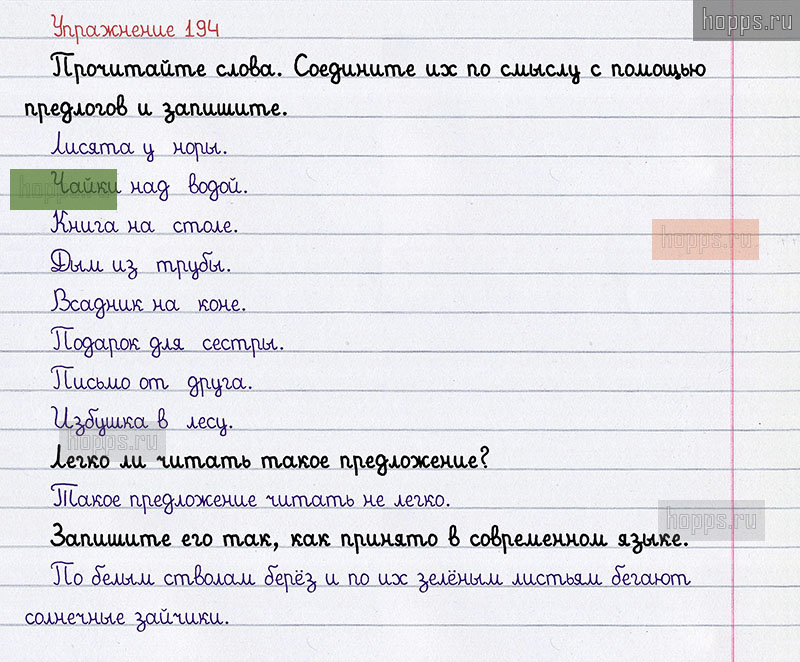 hopps.ru
Упражнение 194
Прочитайте слова. Соедините их по смыслу с помощью
предлогов и запишите.
Лисята у норы.
Чайки над водой.
hopps.ru
Книга на столе.
hopps.ru
Дым из трубы.
Всадник на коне.
Подарок для сестры.
Письмо от друга.
Избушка в лесу.
hopps.ru
Легко ли читать такое предложение?
Такое предложение читать не легко.
hopps.ru
Запишите его так, как принято в современном языке.
По белым стволам берёз и по их зелёным листьям бегают
солнечные зайчики.